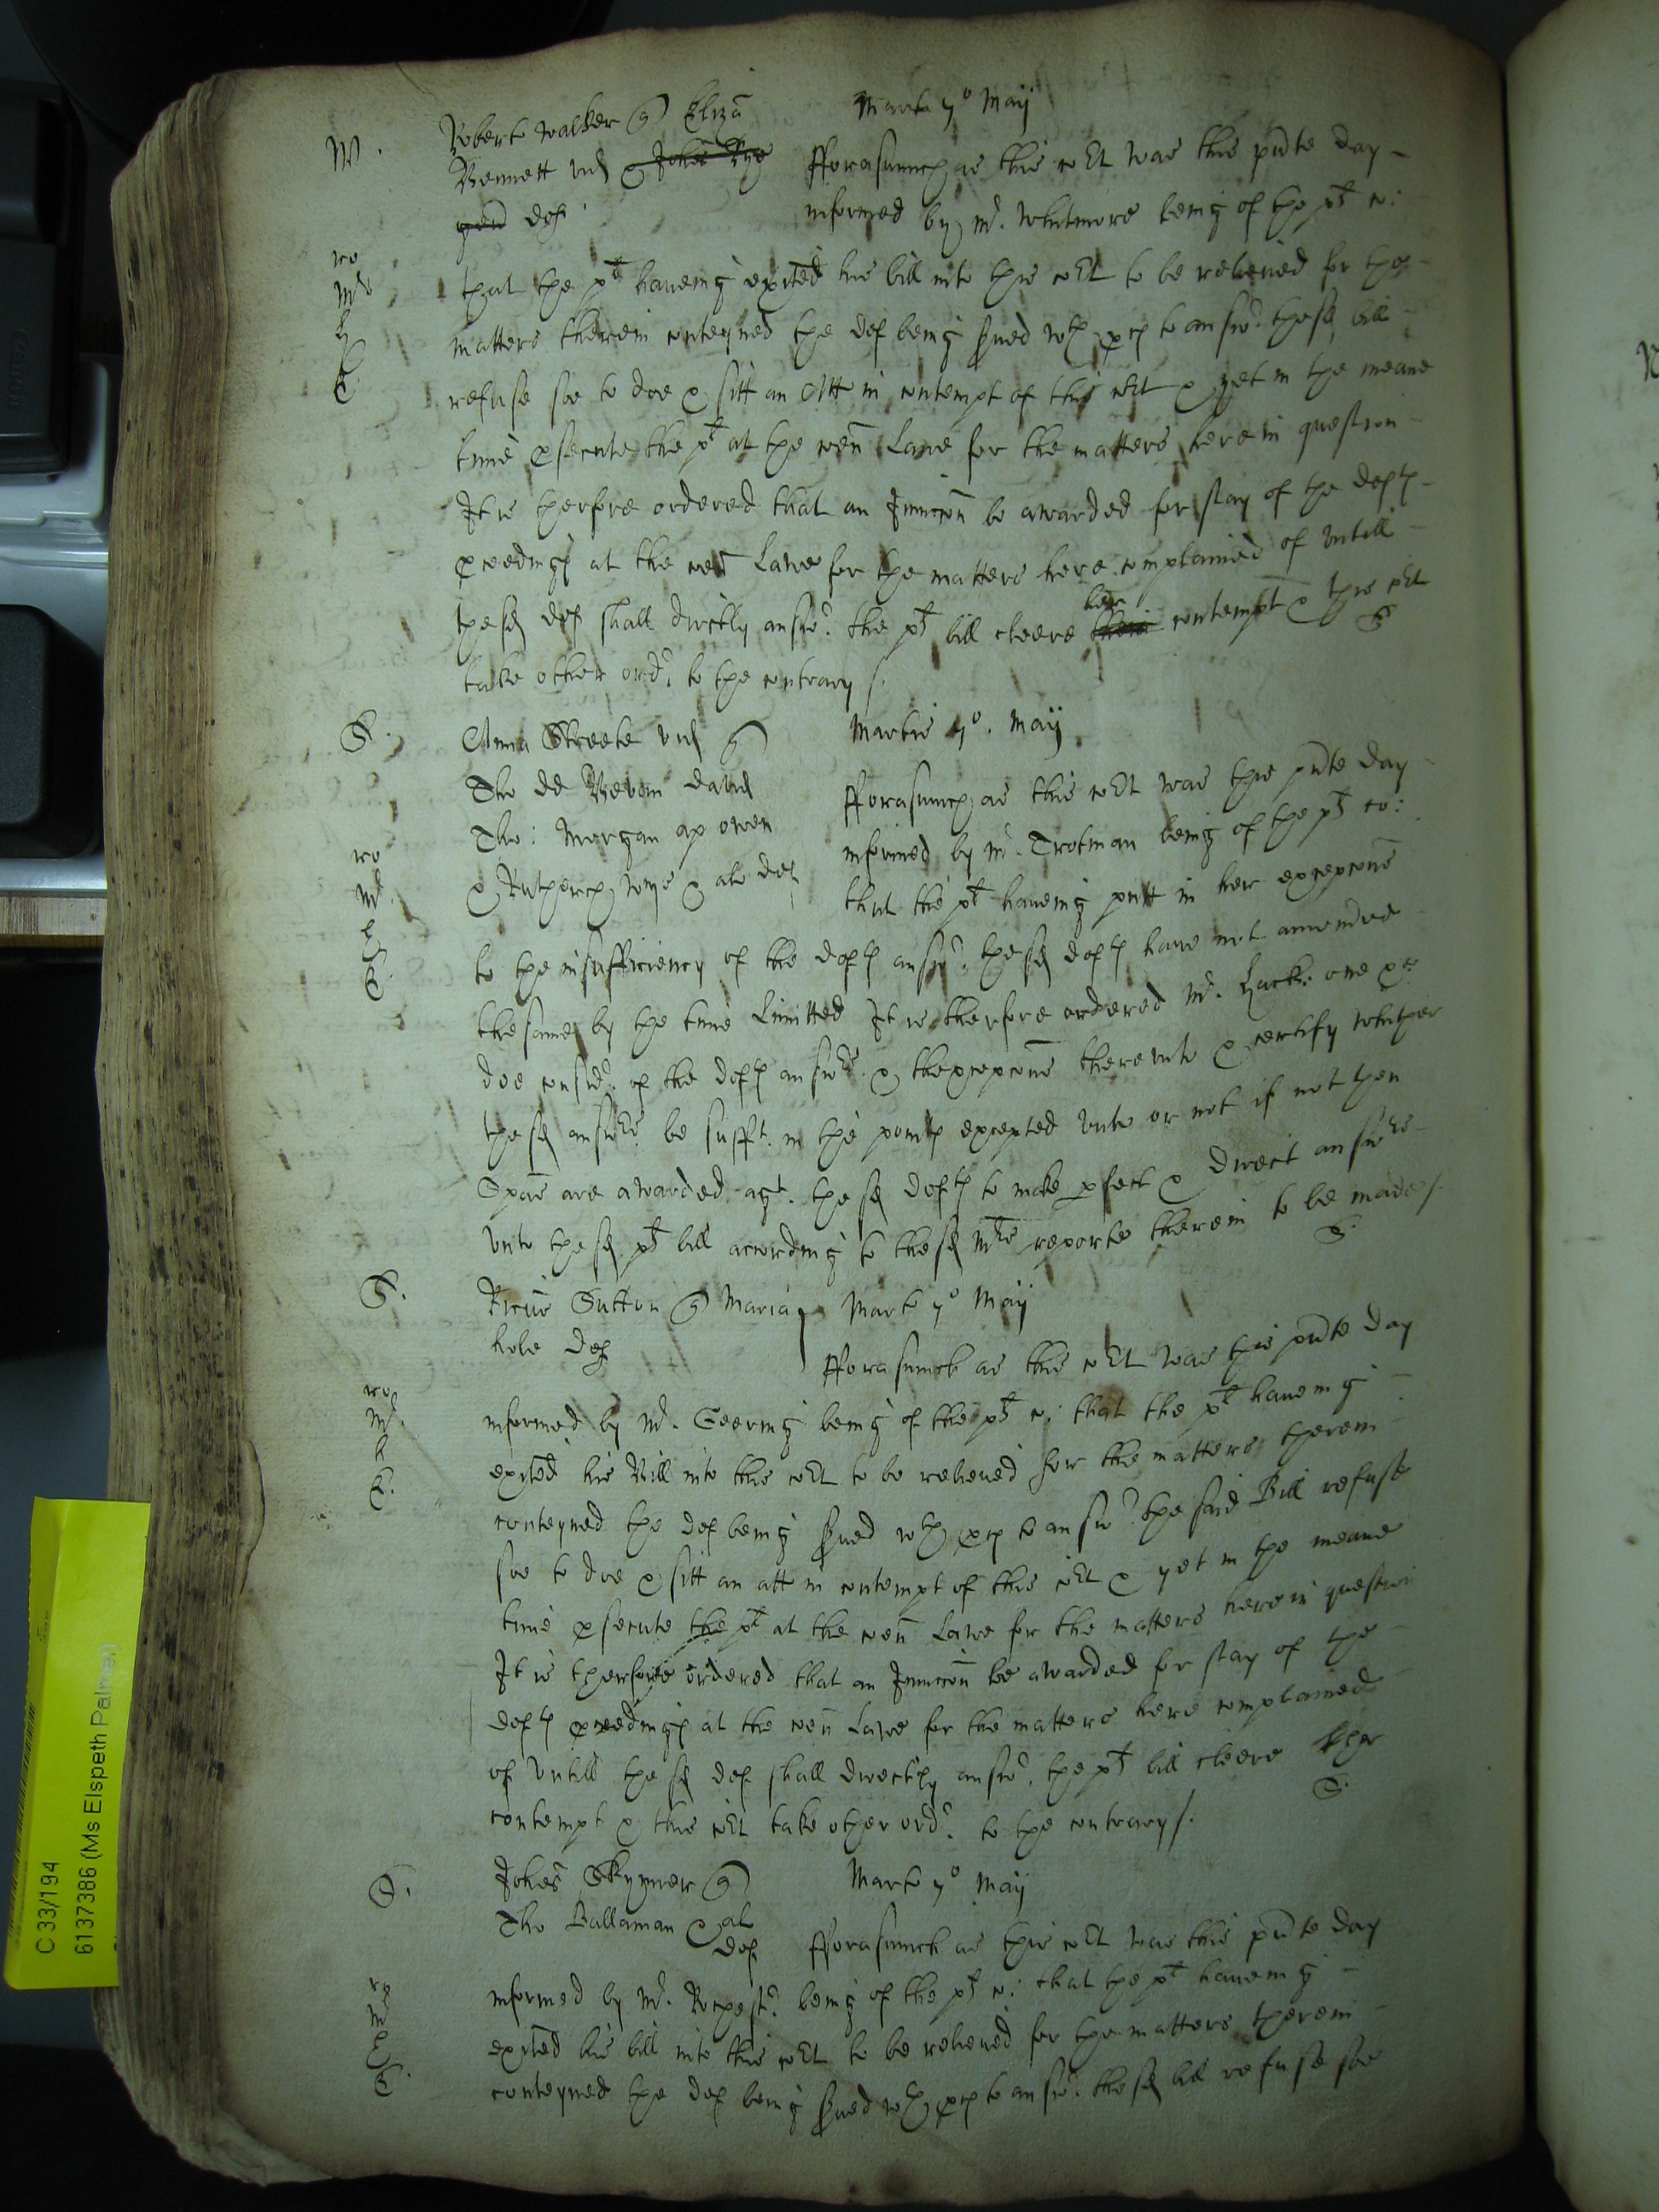 W. Roberto Walker q Eliza Marte 7o Maij
Bennett vid & Johes Rye fforasmuch as this cort was this pnte day
gen def informed by Mr. Whitmore being of the plts co:
that the plt haveing exited his bill into this cort to be releived for the
matters therein conteyned the def being served wth proces to answr. the sd bill
refuse soe to doe & sitt an Att in contempt of this cort & yet in the meane
time psecute the plt at the comon Lawe for the matters here in question
It is therfore ordered that an Iniuncon be awarded for stay of the defts
pceedings at the comon Lawe for the matters here complained of vntill
the sd def shall directly answr. the plts bill cleere their her contempt & this cort
take other ordr. to the contrary /. S
S. Anna Streete vid q Martis 7o. Maij
Tho dd Bevan David fforasmuch as this cort was this pnte day
Tho: Morgan ap owen informed by Mr. Trotman being of the plts co:
& als def that the plt haveing putt in her excepcons
to the insufficiency of the defts answr. the sd defts have not amended
the same by the time Limitted It is therfore ordered Mr. one &c
doe considr. of the defts answrs. & thexcepcons therevnto & certify whither
the sd answrs. be sufft. in the points excepted vnto or not if not then
Spas are awarded agt. the sd defts to make pfect & direct answrs
vnto the sd plts bill according to the sd Mrs reporte therein to be made /. S.
S. Ricus Sutton q Maria Marte 7o Maij
hole def fforasmuch as this cort was this pnte day
informed by Mr. Geering being of the plts co: that the plt haveing
exited his Bill into this cort to be releived for the matters therein
conteyned the def being served wth proces to answr. the said Bill refuse
soe to doe & sitt an att in contempt of this cort & yet in the meane
time psecute the plt at the comon Lawe for the matters here in question
It is therfore ordered that an Iniuncon be awarded for stay of the
defts pceedings at the comon Lawe for the matters here complained
of vntill the sd def shall directly answr. the plts bill cleere her
contempt & this cort take other ordr. to the contrary /. S.
S. Johes Skynner q Marte 7o Maij
Tho Ballaman & al
def fforasmuch as this cort was this pnte day
informed by Mr. Rochestr. being of the plts co: that the plt haveing
exited his bill into this cort to be releived for the matters therein
conteyned the def being served wth proces to answr. the sd bill refuse soe
C 33/194
6137386 (Ms Elspeth Palmer)